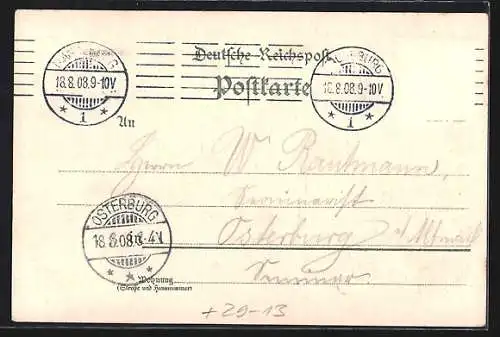 Deutsche Reichspost
Postkarte
18.8.08.9-10V
1
BURG
18.8.08.9-10V
1
An
Herrn W. Rautmann,
Seminarist
Osterburg i/ Altmark
Seminar.
OSTERBURG
18.8.08.
Wohnung
(Straße und Hausnummer)
+29-13